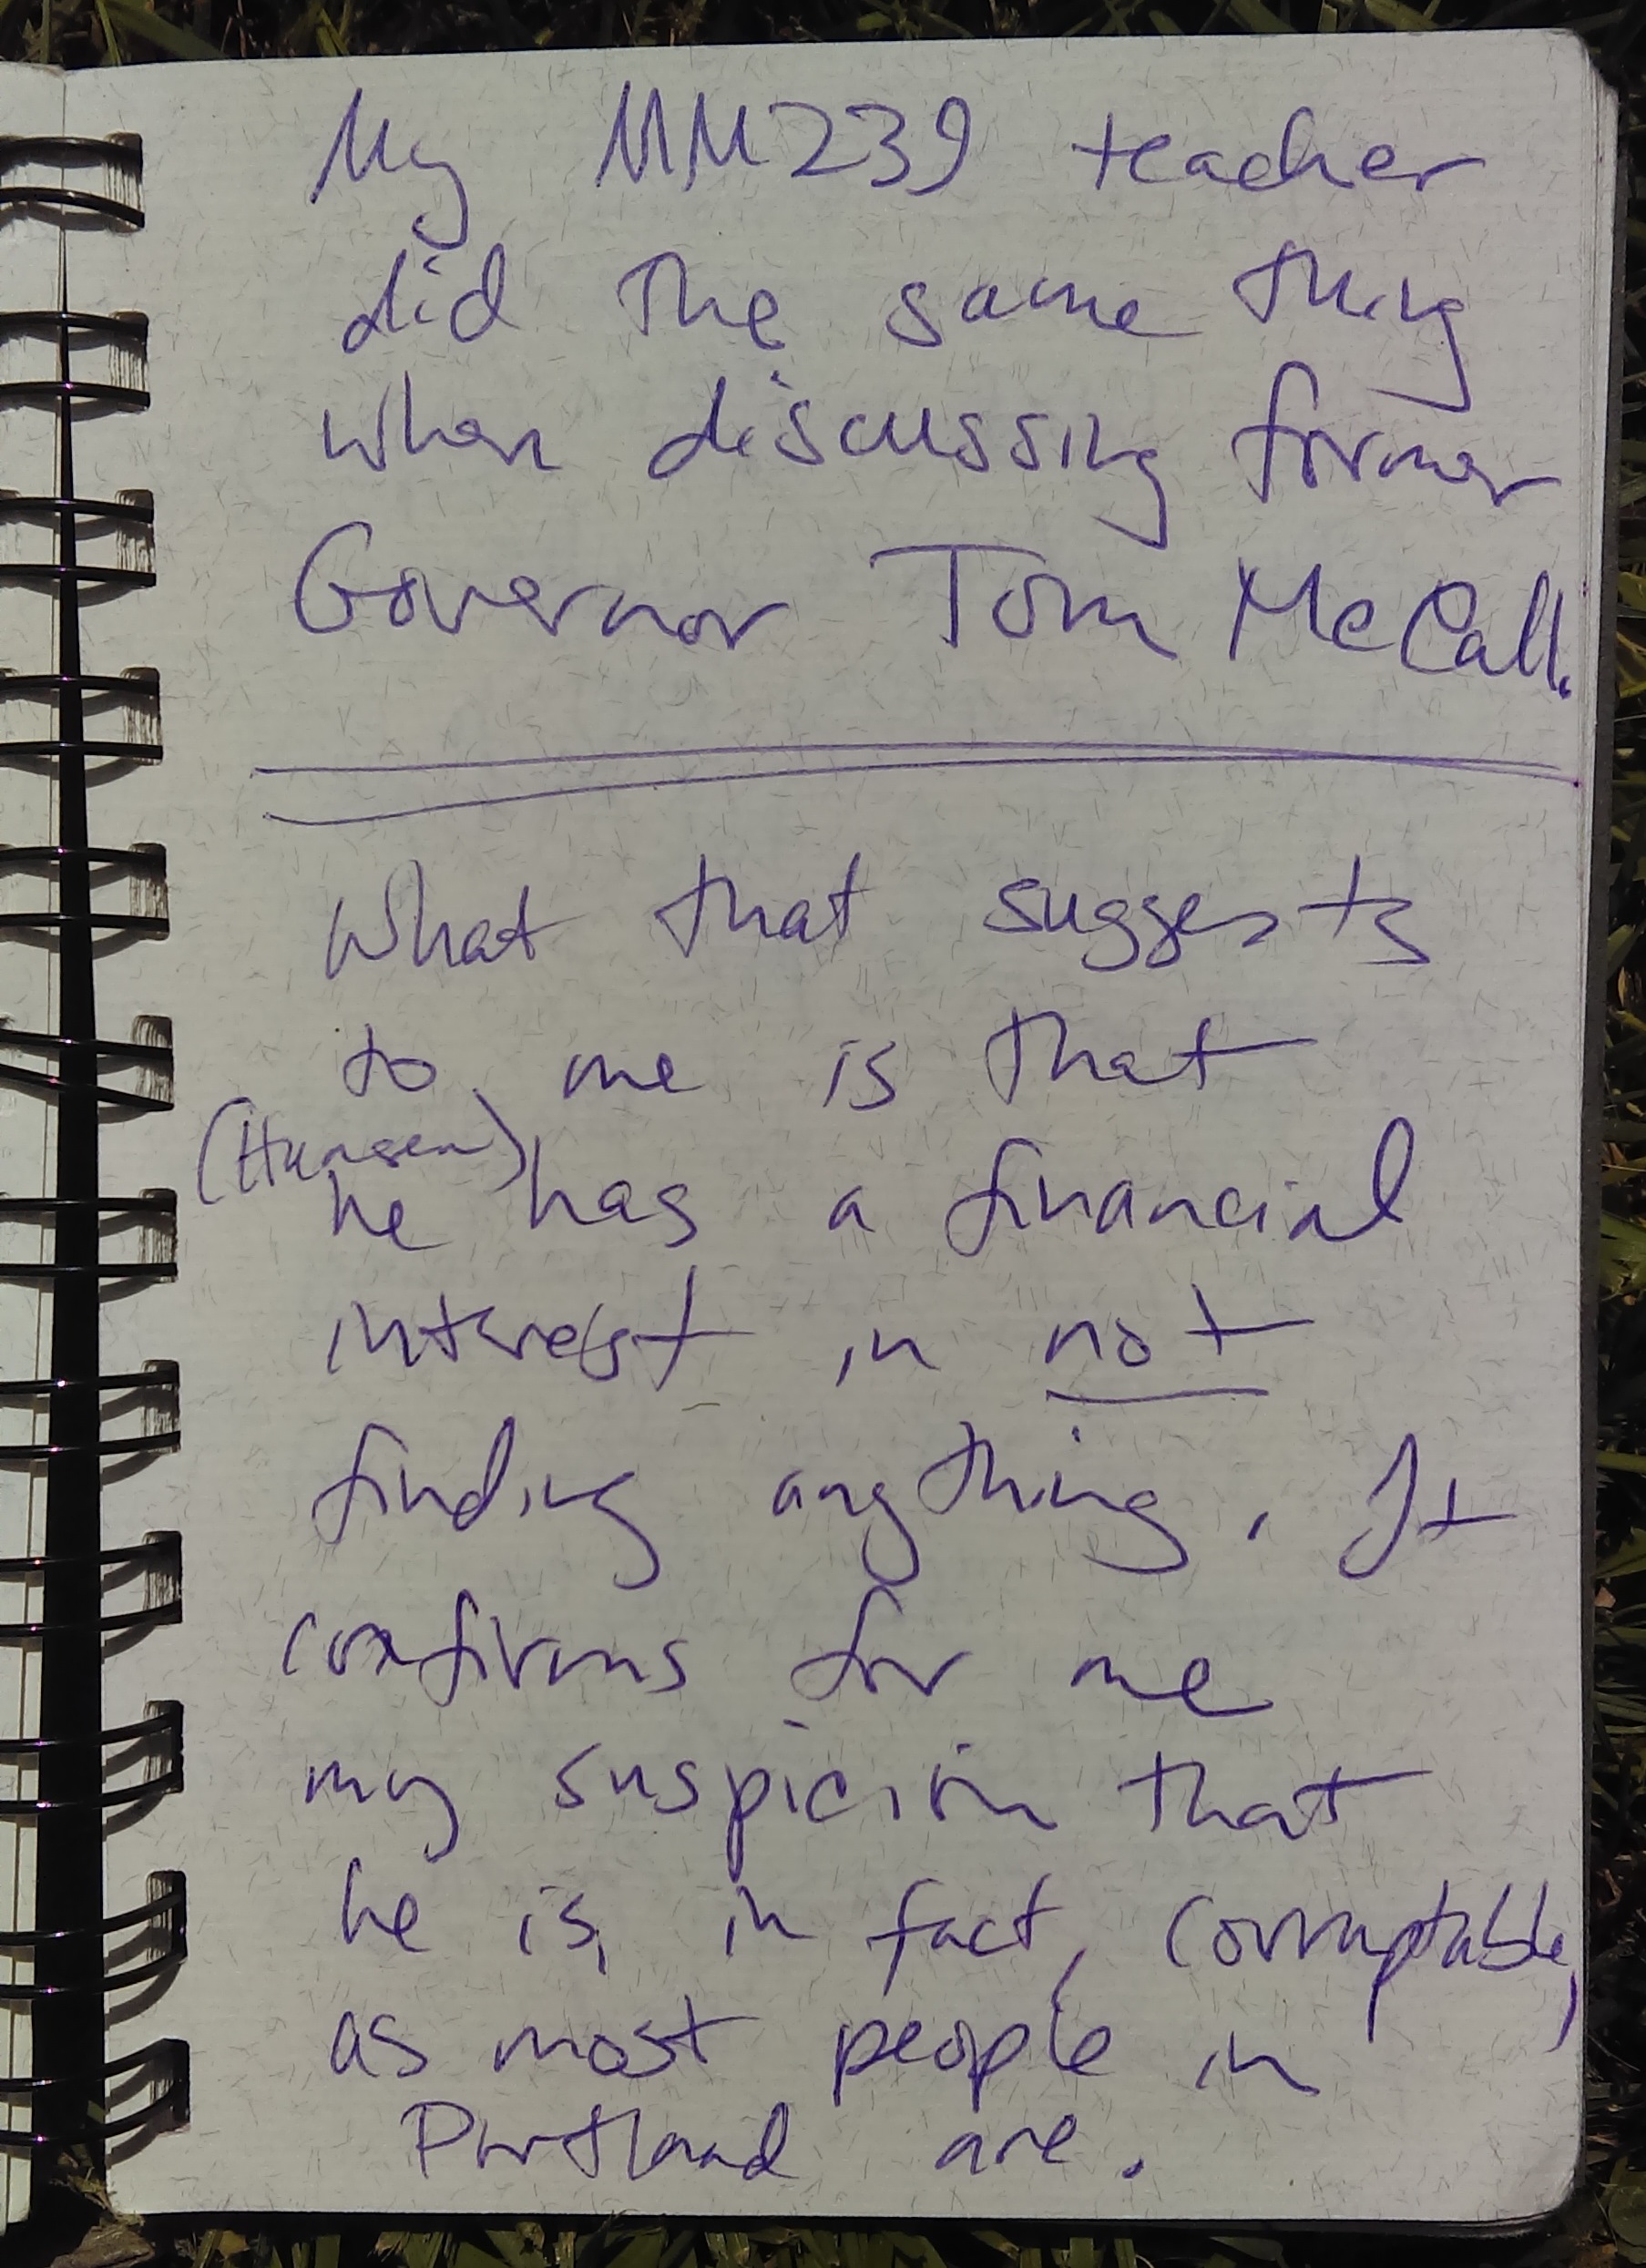 My MM239 teacher
did the same thing
when discussing former
Governor Tom McCall.
What that suggests
to me is that
(Hansen)
he has a financial
interest in not
finding anything. It
confirms for me
my suspicion that
he is, in fact, corruptable,
as most people in
Portland are.